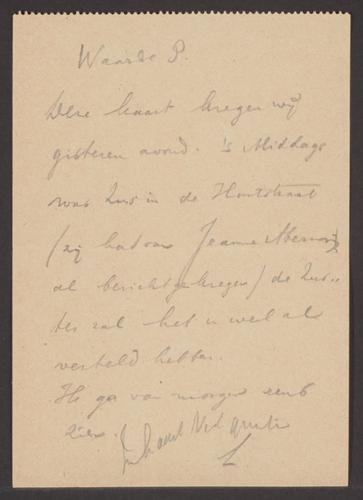 Waarde P.
Deze kaart kregen wij
gisteren avond. 's Middags
was Zus in de Houtstraat
(zij had van Jeanne
al bericht gekregen) de Zus-
ter zal het u wel al
verteld hebben.
Ik ga van morgen eens
zien.
L